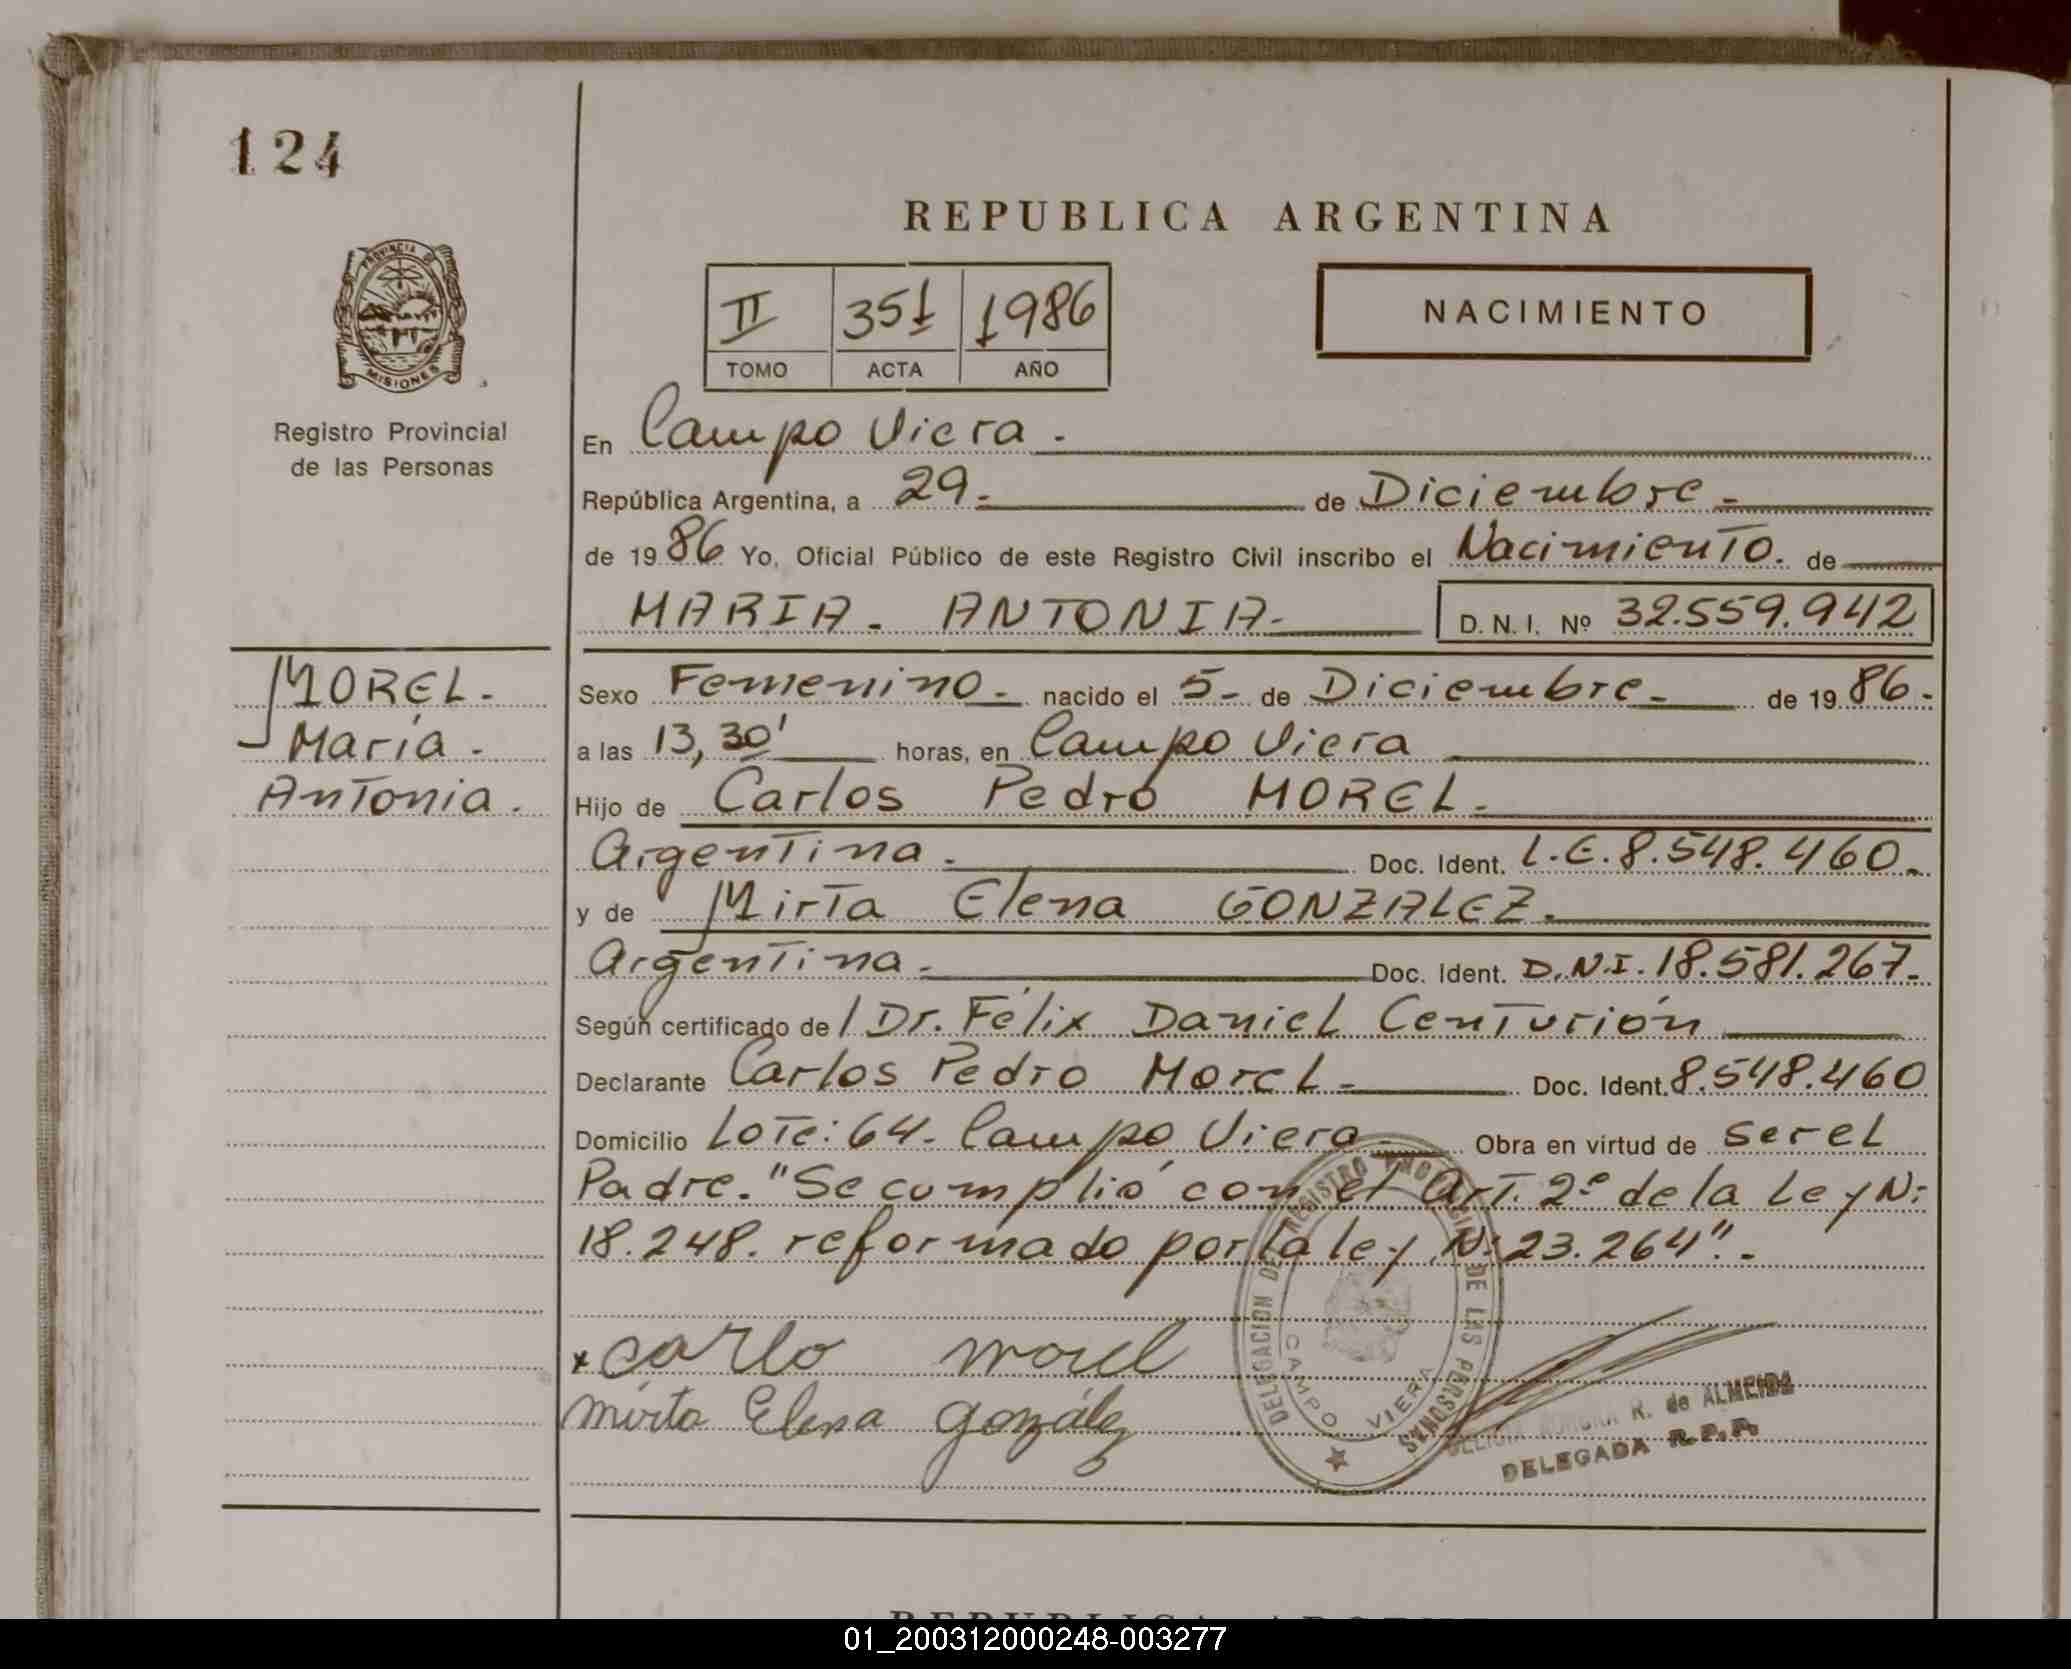 124
REPUBLICA ARGENTINA
PROVINCIA D
MISIONES
Registro Provincial
de las Personas
II 351 1986
TOMO ACTA AÑO
NACIMIENTO
En Campo Viera.
República Argentina, a 29.- de Diciembre.-
de 1986 Yo, Oficial Público de este Registro Civil inscribo el Nacimiento. de
MARIA. ANTONIA.- D. N. I. Nº 32.559.942
MOREL.-
María.
Antonia.
Sexo Femenino.- nacido el 5- de Diciembre.- de 1986.-
a las 13,30' horas, en Campo Viera
Hijo de Carlos Pedro MOREL.-
Argentina.- Doc. Ident. L.E. 8.548.460.-
y de Mirta Elena GONZALEZ.-
Argentina.- Doc. Ident. D.N.I. 18.581.267.-
Según certificado de / Dr. Félix Daniel Centurión
Declarante Carlos Pedro Morel.- Doc. Ident. 8.548.460
Domicilio Lote: 64. Campo Viera.- Obra en virtud de ser el
Padre. "Se cumplió con el Art. 2º de la Ley N:
18.248. reformado por la ley N: 23.264".-
x carlo morel
mirta Elena gonzález
DELEGACION DEL REGISTRO PROVINCIAL DE LAS PERSONAS
CAMPO VIERA
R. de ALMEIDA
DELEGADA R.P.P.
01_200312000248-003277